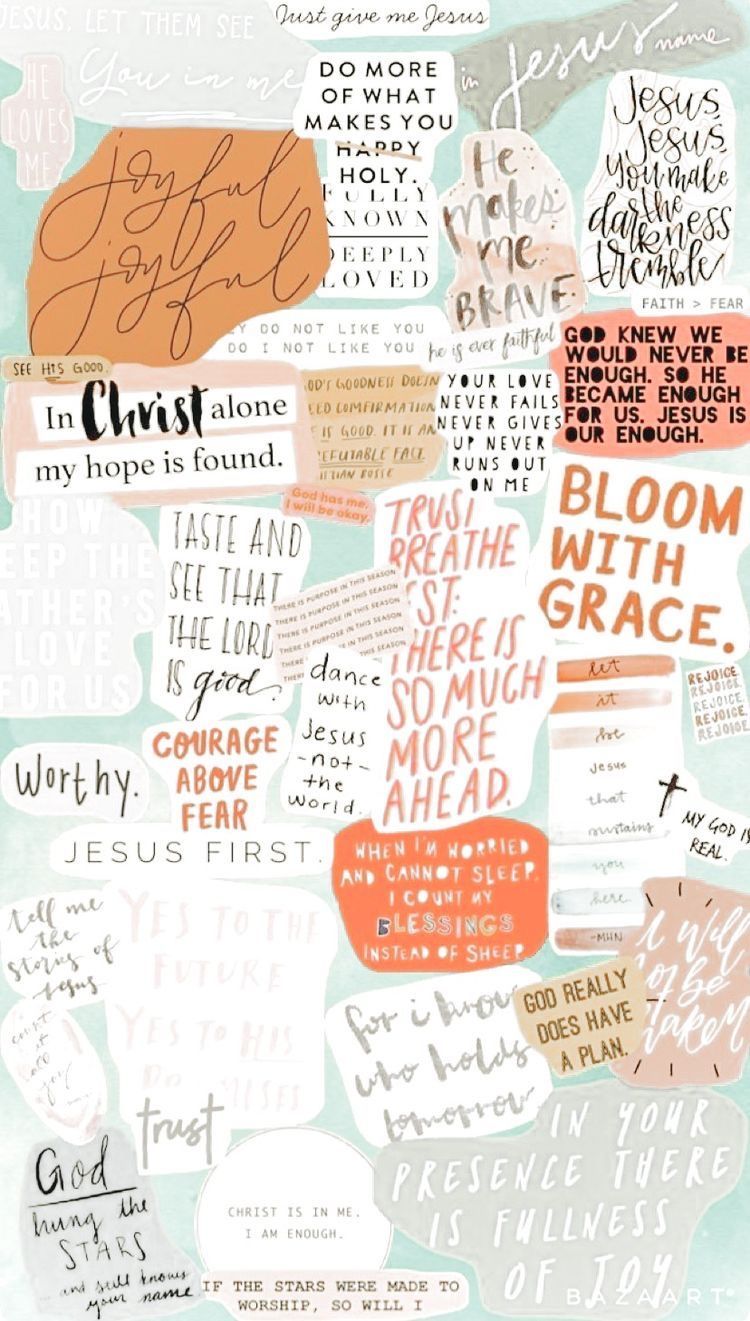 JESUS, LET THEM SEE
You in me
Just give me Jesus
in Jesus name
HE
LOVES
ME
DO MORE
OF WHAT
MAKES YOU
HAPPY
HOLY.
FULLY
KNOWN
DEEPLY
LOVED
joyful
joyful
He
makes
me
BRAVE.
Jesus,
Jesus,
you make
the
darkness
tremble
FAITH > FEAR
Y DO NOT LIKE YOU
DO I NOT LIKE YOU
he is ever faithful
GOD KNEW WE
WOULD NEVER BE
ENOUGH. SO HE
BECAME ENOUGH
FOR US. JESUS IS
OUR ENOUGH.
SEE HIS GOOD.
In Christ alone
my hope is found.
OD'S GOODNESS DOESN
ED COMFIRMATION
IS GOOD. IT IS AN
EFUTABLE FACT
YOUR LOVE
NEVER FAILS
NEVER GIVES
UP NEVER
RUNS OUT
ON ME
God has me,
I will be okay.
HOW
EEP THE
ATHER'S
LOVE
FOR US
TASTE AND
SEE THAT
THE LORD
IS good.
THERE IS PURPOSE IN THIS SEASON
THERE IS PURPOSE IN THIS SEASON
THERE IS PURPOSE IN THIS SEASON
THERE IS PURPOSE IN THIS SEASON
THERE IS PURPOSE IN THIS SEASON
THERE
TRUST
BREATHE
EST.
THERE IS
SO MUCH
MORE
AHEAD.
BLOOM
WITH
GRACE.
dance
with
Jesus
-not-
the
world.
let
it
be
Jesus
that
sustains
you
here
-MHN
REJOICE.
REJOICE.
REJOICE.
REJOICE.
REJOICE.
Worthy.
COURAGE
ABOVE
FEAR
MY GOD IS
REAL.
JESUS FIRST.
WHEN I'M WORRIED
AND CANNOT SLEEP.
I COUNT MY
BLESSINGS
INSTEAD OF SHEEP
tell me
the
stories of
Jesus
YES TO THE
FUTURE
YES TO HIS
PROMISES
I will
not be
shaken
GOD REALLY
DOES HAVE
A PLAN.
for i know
who holds
tomorrow
count
it
all
joy
trust
God
hung the
STARS
and still knows
your name
CHRIST IS IN ME.
I AM ENOUGH.
IN YOUR
PRESENCE THERE
IS FULLNESS
OF JOY
IF THE STARS WERE MADE TO
WORSHIP, SO WILL I
BAZAART